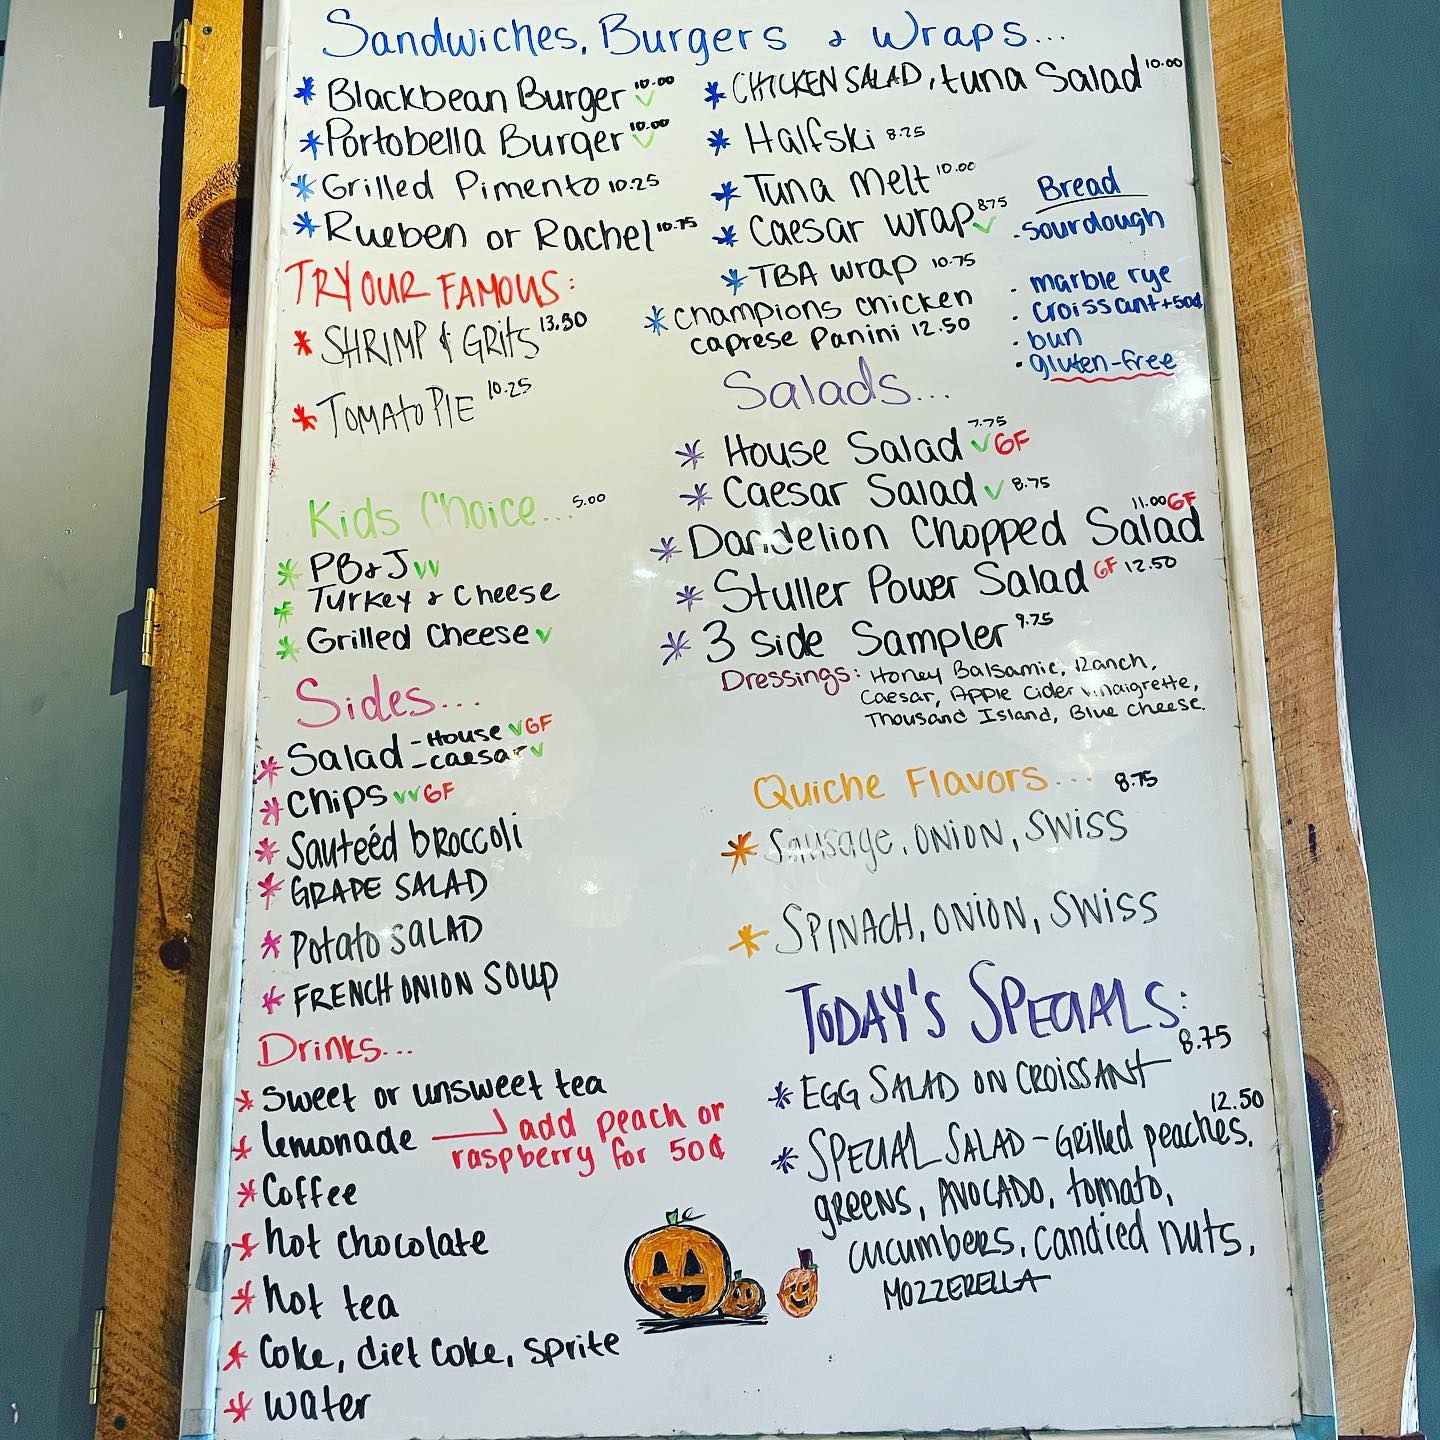 Sandwiches, Burgers & Wraps...
* Blackbean Burger 10.00 ✓
* Portobella Burger 10.00 ✓
* Grilled Pimento 10.25
* Rueben or Rachel 10.75
* CHICKEN SALAD, tuna Salad 10.00
* Halfski 8.25
* Tuna Melt 10.00
* Caesar wrap 8.75 ✓
* TBA wrap 10.75
* Champions chicken
caprese Panini 12.50
Bread
. sourdough
. marble rye
. croissant +50¢
. bun
. gluten-free
TRY OUR FAMOUS:
* SHRIMP & GRITS 13.50
* TOMATO PIE 10.25
Kids Choice... 5.00
* PB & J VV
* Turkey & Cheese
* Grilled Cheese V
Sides...
* Salad - House V GF
- Caesar V
* Chips VV GF
* Sauteéd broccoli
* GRAPE SALAD
* Potato SALAD
* FRENCH ONION SOUP
Drinks...
* Sweet or unsweet tea
* lemonade
add peach or
raspberry for 50¢
* Coffee
* hot chocolate
* hot tea
* Coke, diet coke, sprite
* water
Salads...
* House Salad 7.75 V GF
* Caesar Salad V 8.75
* Dandelion Chopped Salad 11.00 GF
* Stuller Power Salad GF 12.50
* 3 side Sampler 9.75
Dressings: Honey Balsamic, Ranch,
Caesar, Apple Cider Vinaigrette,
Thousand Island, Blue Cheese.
Quiche Flavors... 8.75
* Sausage, ONION, SWISS
* SPINACH, ONION, SWISS
TODAY'S SPECIALS:
* EGG SALAD ON CROISSANT 8.75
* SPECIAL SALAD - Grilled peaches, 12.50
greens, AVOCADO, tomato,
cucumbers, candied nuts,
MOZZERELLA